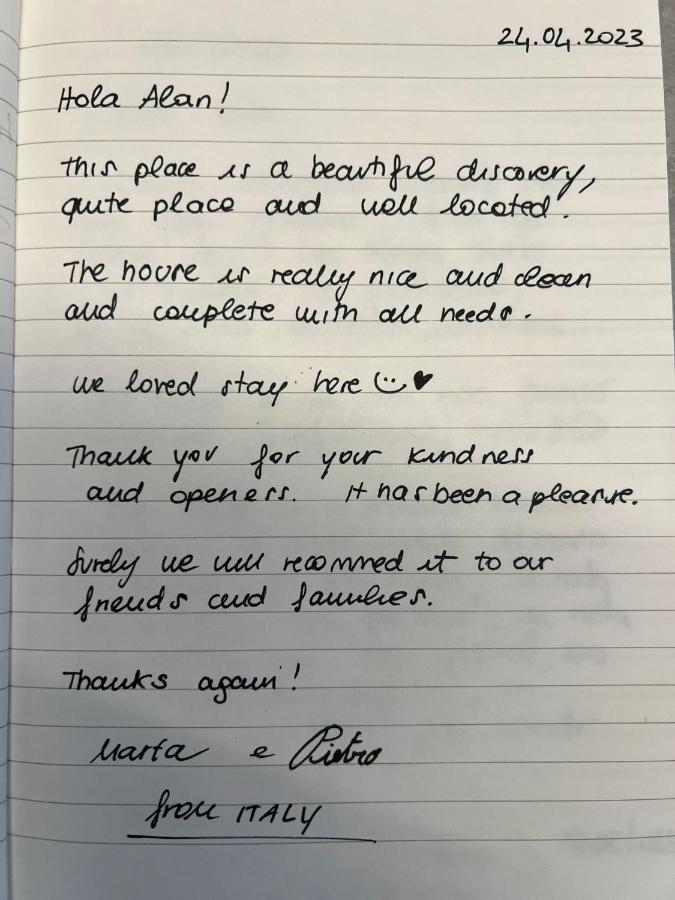 24.04.2023
Hola Alan!
This place is a beautiful discovery,
quite place and well located!
The house is really nice and clean
and complete with all needs.
we loved stay here ☺♥
Thank you for your kindness
and openess. It has been a pleasure.
Surely we will recommed it to our
friends and families.
Thanks again!
Marta e Pietro
from ITALY